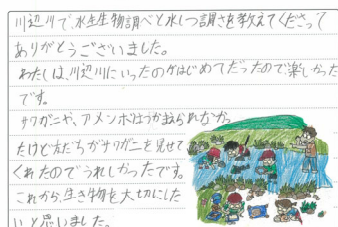 川辺川で、水生生物調べと水しつ調さを教えてくださって
ありがとうございました。
わたしは、川辺川にいったのがはじめてだったので楽しかった
です。
サワガニや、アメンボはつかまえられなかっ
たけど友だちがサワガニを見せて
くれたのでうれしかったです。
これから、生き物を大切にした
いと思いました。